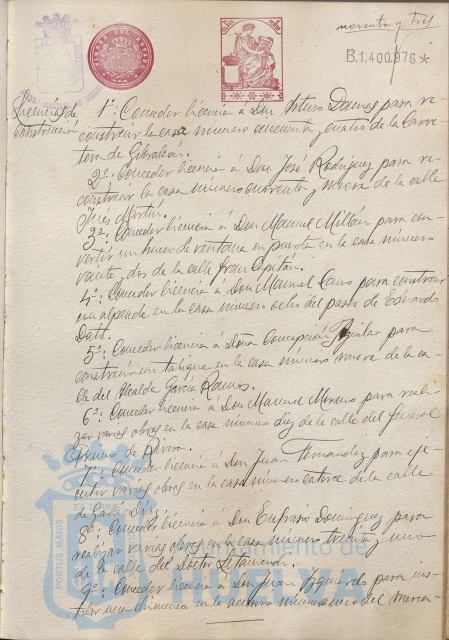 noventa y tres
B.1.400.976*
TIMBRE DEL ESTADO
Licencias de
construcción
1ª: Conceder licencia á Don Arturo Daunes para re-
construir la casa número cincuenta y cuatro de la Carre-
tera de Gibraleón.
2ª: Conceder licencia á Don José Rodríguez para re-
construir la casa número cuarenta y nueve de la calle
Inés Martín.
3ª: Conceder licencia á Don Manuel Millán para con-
vertir un hueco de ventana en puerta en la casa número
veinte y dos de la calle Gran Capitán.
4ª: Conceder licencia á Don Manuel Cano para construir
un alpende en la casa número ocho del paseo de Eduardo
Dato.
5ª: Conceder licencia á Doña Concepción Aguilar para
construir un tabique en la casa número nueve de la ca-
lle del Alcalde García Ramos.
6ª: Conceder licencia á Don Manuel Moreno para reali-
zar varias obras en la casa número diez de la calle del General
Primo de Rivera.
7ª: Conceder licencia á Don Juan Fernandez para eje-
cutar varias obras en la casa número catorce de la calle
de García Díaz.
8ª: Conceder licencia á Don Eufrasio Domínguez para
realizar varias obras en la casa número treinta y uno
de la calle del Doctor Letamendi.
9ª: Conceder licencia á Don Juan Izquierdo para ins-
talar una chimenea en la número uno del merca-
Ayuntamiento de
HUELVA
PORTUS MARIS